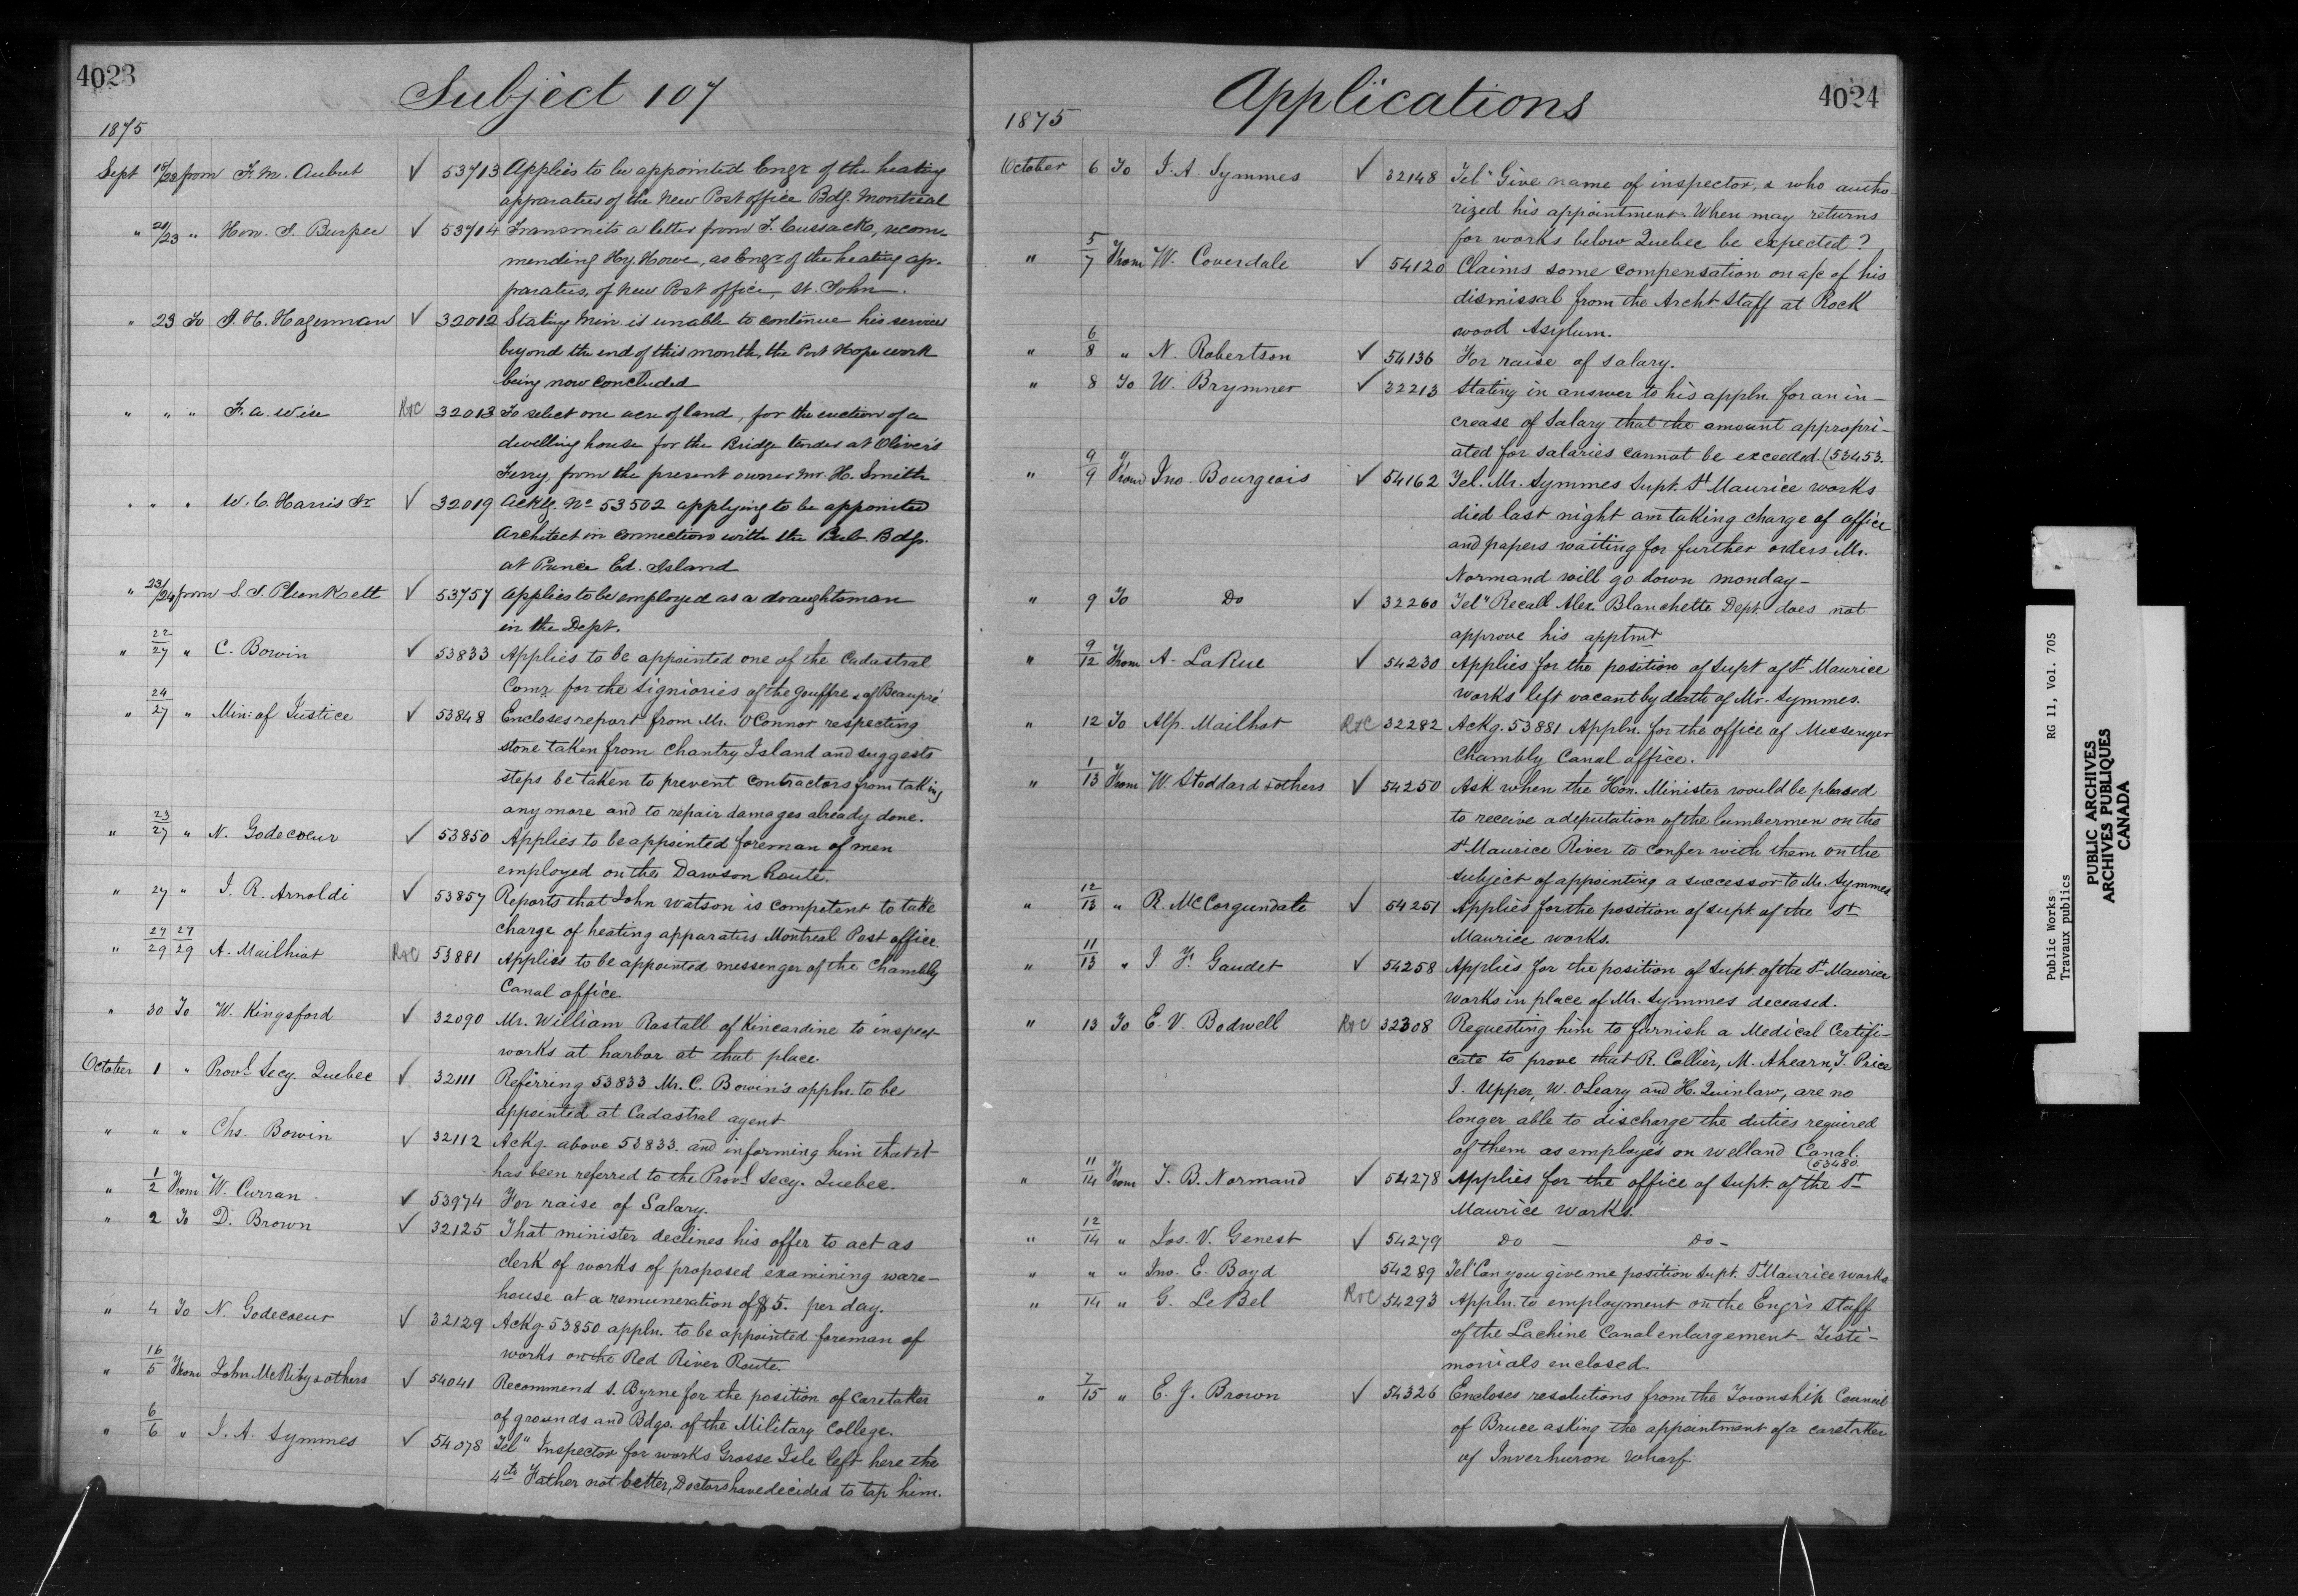 4023
Subject 107
1875
Sept 18/23 from F. M. Aubut ✓ 53713 Applies to be appointed Engr. of the heating
apparatus of the New Post office Bdg. Montreal
" 21/23 " Hon. I. Burpee ✓ 53714 Transmits a letter from T. Cussack, recom-
mending Hy. Howe, as Engr. of the heating ap-
paratus, of New Post office, St. John.
" 23 To J. H. Hagerman ✓ 32012 Stating Min. is unable to continue his services
beyond the end of this month, the Port Hope work
being now concluded
" " " F. A. Wise R&C 32013 To select one acre of land, for the erection of a
dwelling house for the Bridge tender at Oliver's
Ferry from the present owner Mr. H. Smith
" " " W. C. Harris Jr ✓ 32019 Ackg. No 53502 applying to be appointed
Architect in connection with the Pub. Bdgs.
at Prince Ed. Island
" 23/24 from S. J. Plunkett ✓ 53757 Applies to be employed as a draughtsman
in the Dept.
" 22/27 " C. Bowin ✓ 53833 Applies to be appointed one of the Cadastral
Comr for the Signiories of the Gouffre & of Beaupré
" 24/27 " Min: of Justice ✓ 53848 Encloses report from Mr. O'Connor respecting
stone taken from Chantry Island and suggests
steps be taken to prevent contractors from taking
any more and to repair damages already done.
" 23/27 " N. Godecoeur ✓ 53850 Applies to be appointed foreman of men
employed on the Dawson Route.
" 27 " J. R. Arnoldi ✓ 53857 Reports that John Watson is competent to take
charge of heating apparatus Montreal Post office.
" 27/29 27/29 A. Mailhiot R&C 53881 Applies to be appointed messenger of the Chambly
Canal office.
" 30 To W. Kingsford ✓ 32090 Mr. William Rastall of Kincardine to inspect
works at harbor at that place.
October 1 " Provl. Secy. Quebec ✓ 32111 Referring 53833 Mr. C. Bowin's appln. to be
appointed at Cadastral agent
" " " Chs. Bowin ✓ 32112 Ackg. above 53833. and informing him that it
has been referred to the Provl. Secy. Quebec.
" 1/2 From W. Curran ✓ 53974 For raise of Salary.
" 2 To D. Brown ✓ 32125 That minister declines his offer to act as
clerk of works of proposed examining ware-
house at a remuneration of $5. per day.
" 4 To N. Godecoeur ✓ 32129 Ackg. 53850 appln. to be appointed foreman of
works on the Red River Route.
" 16/5 From John McRiby & others ✓ 54041 Recommend S. Byrne for the position of caretaker
of grounds and Bdgs. of the Military College.
" 6/6 " J. A. Symmes ✓ 54078 Tel" Inspector for works Grosse Isle left here the
4th Father not better, Doctors have decided to tap him.
4024
Applications
1875
October 6 To J. A. Symmes ✓ 32148 Tel" Give name of inspector, & who autho-
rized his appointment. When may returns
for works below Quebec be expected?
" 5/7 From W. Coverdale ✓ 54120 Claims some compensation on a/c of his
dismissal from the Archt. Staff at Rock
wood Asylum.
" 6/8 " N. Robertson ✓ 54136 For raise of salary.
" 8 To W. Brymner ✓ 32213 Stating in answer to his appln. for an in-
crease of Salary that the amount appropri-
ated for salaries cannot be exceeded. (53453.
" 9/9 From Jno. Bourgeois ✓ 54162 Tel. Mr. Symmes Supt. St Maurice works
died last night am taking charge of office
and papers waiting for further orders Mr.
Normand will go down monday-
" 9 To Do ✓ 32260 Tel" Recall Alex. Blanchette Dept. does not
approve his apptmt
" 9/12 From A. LaRue ✓ 54230 Applies for the position of Supt of St Maurice
works left vacant by death of Mr. Symmes.
" 12 To Alp. Mailhot R&C 32282 Ackg. 53881 Appln. for the office of Messenger
Chambly Canal office.
" 1/13 From W. Stoddard & others ✓ 54250 Ask when the Hon. Minister would be pleased
to receive a deputation of the lumbermen on the
St Maurice River to confer with them on the
subject of appointing a successor to Mr. Symmes
" 12/13 " R. McCorgundate ✓ 54251 Applies for the position of supt. of the St
Maurice works.
" 11/13 " J. F. Gaudet ✓ 54258 Applies for the position of Supt. of the St Maurice
works in place of Mr. Symmes deceased.
" 13 To E. V. Bodwell R&C 32308 Requesting him to furnish a Medical Certifi-
cate to prove that R. Collier, M. Ahearn, T. Price
J. Upper, W. O'Leary and H. Quinlaw, are no
longer able to discharge the duties required
of them as employés on Welland Canal.
(53480.
" 11/14 From T. B. Normand ✓ 54278 Applies for the office of Supt. of the St
Maurice works.
" 12/14 " Jos. V. Genest ✓ 54279 Do — Do -
" " " Jno. E. Boyd 54289 Tel" Can you give me position Supt. St Maurice works
" 14 " G. LeBel R&C 54293 Appln. to employment on the Engr's staff
of the Lachine Canal enlargement - Testi-
monials enclosed.
" 7/15 " E. J. Brown ✓ 54326 Encloses resolutions from the Township Council
of Bruce asking the appointment of a caretaker
of Inverhuron wharf.
Public Works RG 11, Vol. 705
Travaux publics
PUBLIC ARCHIVES
ARCHIVES PUBLIQUES
CANADA